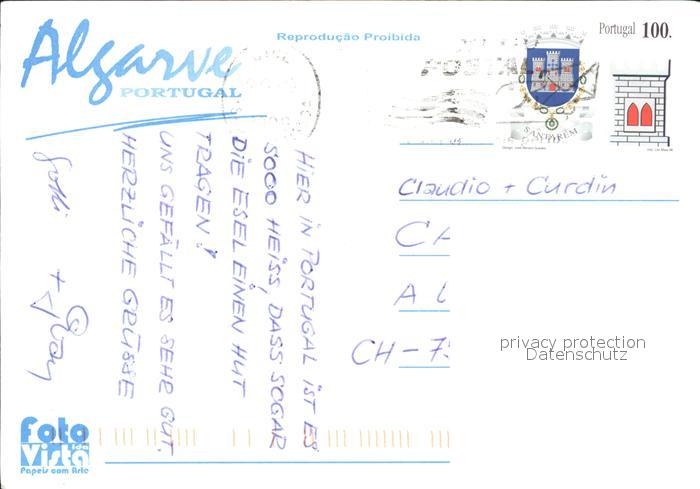 Algarve
PORTUGAL
Reprodução Proibida
Portugal 100.
POSTA
SANTARÉM
HIER IN PORTUGAL IST ES
SOOO HEISS, DASS SOGAR
DIE ESEL EINEN HUT
TRAGEN!
UNS GEFÄLLT ES SEHR GUT.
HERZLICHE GRÜSSE
Claudio + Curdin
CA
AL
CH-7
privacy protection
Datenschutz
Foto
Vista
Papeis com Arte